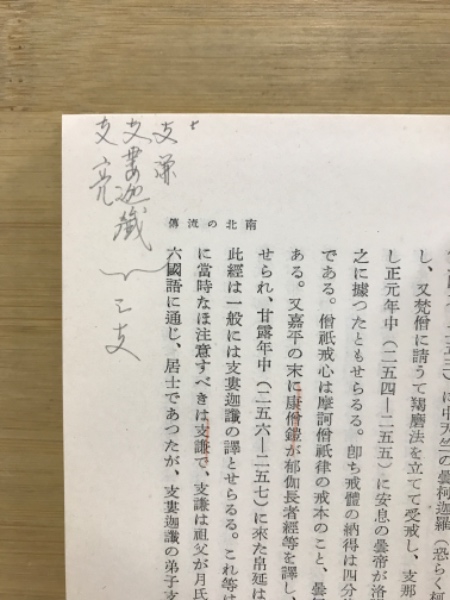 南北の流傳
し、又梵僧に請うて羯磨法を立てて受戒し、支那
し正元年中（二五四―二五五）に安息の曇帝が洛
之に據つたともせらるる。卽ち戒體の納得は四分
である。僧祇戒心は摩訶僧祇律の戒本のこと、曇
ある。又嘉平の末に康僧鎧が郁伽長者經等を譯し、
せられ、甘露年中（二五六―二五七）に來た帛延は
此經は一般には支婁迦讖の譯とせらるる。これ等は
に當時なほ注意すべきは支謙で、支謙は祖父が月氏
六國語に通じ、居士であつたが、支婁迦讖の弟子支
支謙
支婁迦讖
支亮
三支